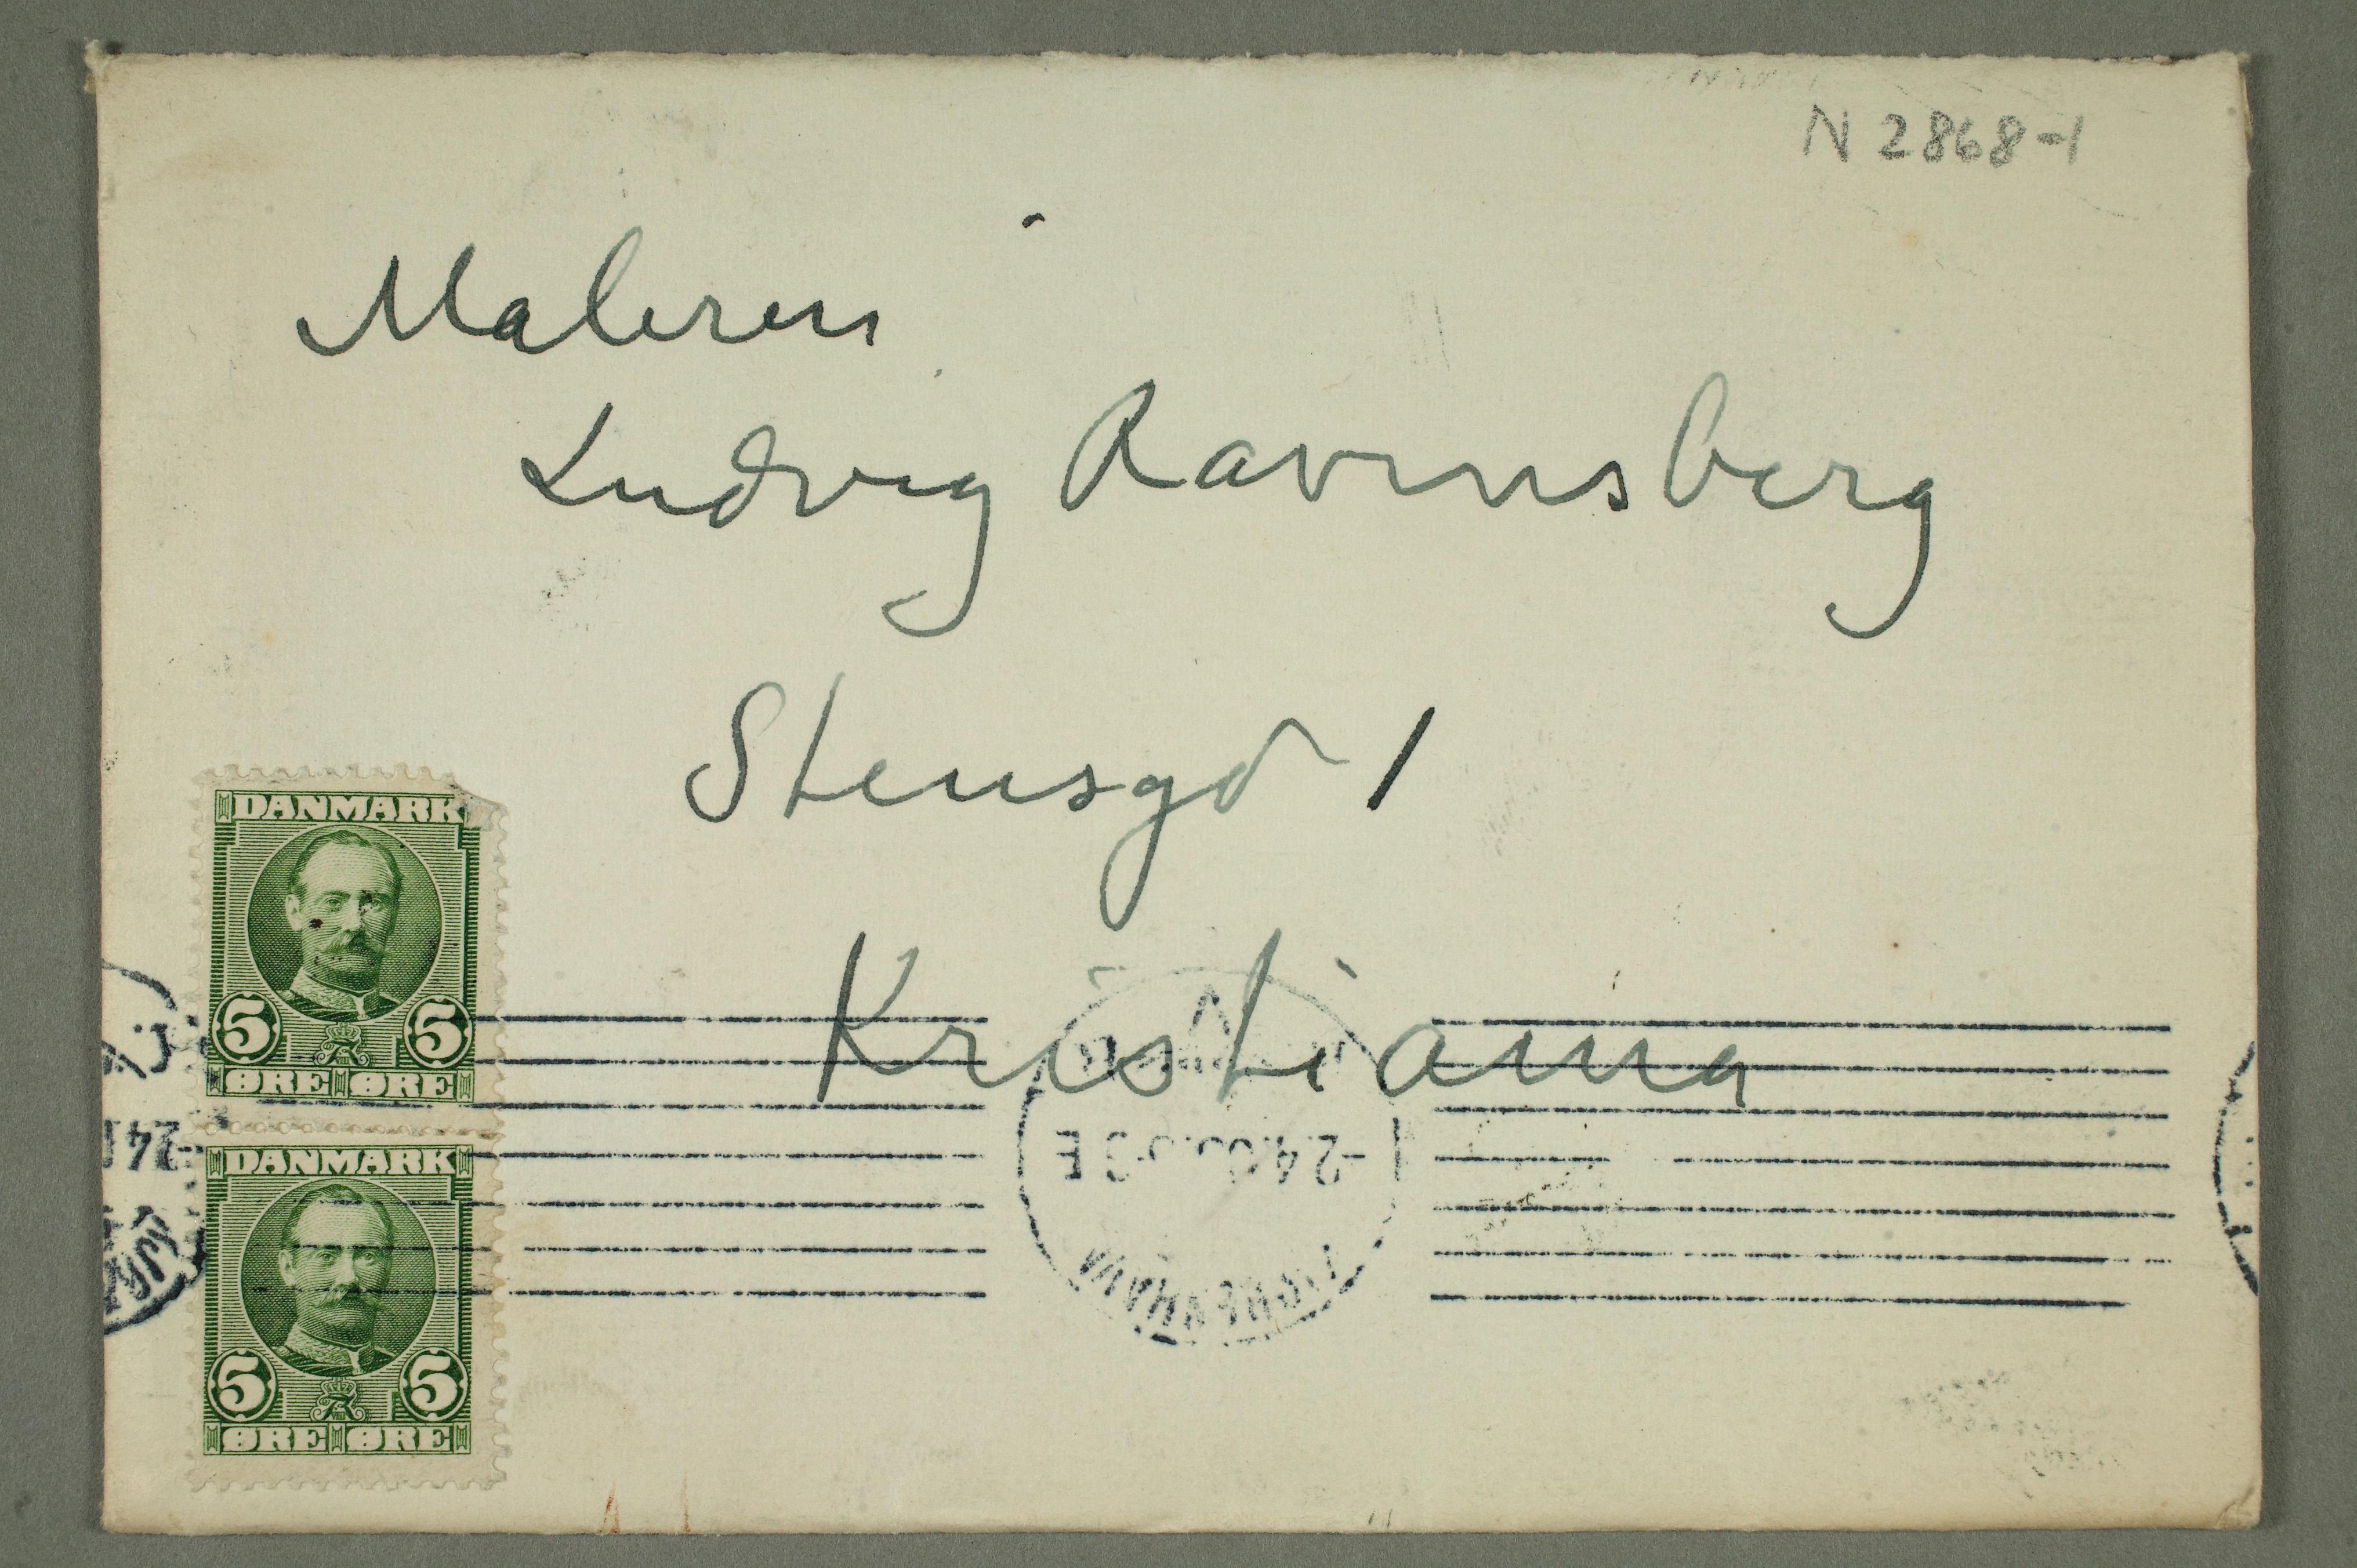 N 2868-1
Maleren
Ludvig Ravensberg
Stensgd 1
Kristiania
DANMARK
5 5
ØRE ØRE
DANMARK
5 5
ØRE ØRE